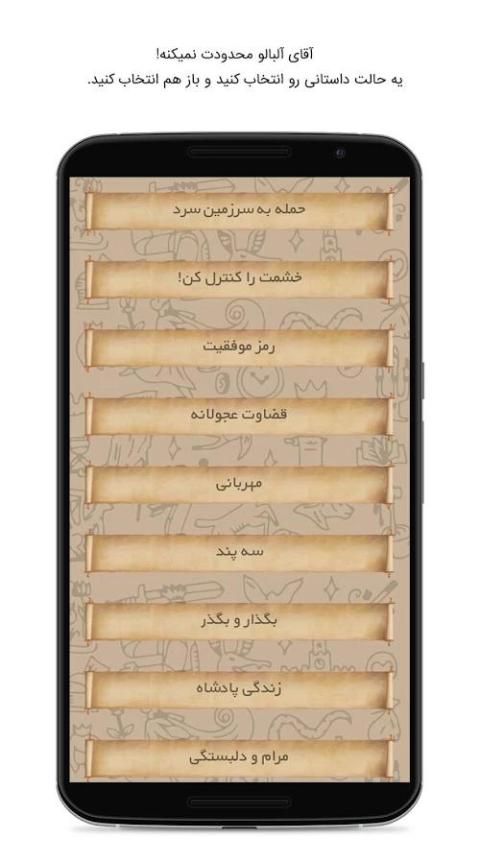 آقای آلبالو محدودت نمیکنه!
یه حالت داستانی رو انتخاب کنید و باز هم انتخاب کنید.
حمله به سرزمین سرد
خشمت را کنترل کن!
رمز موفقیت
قضاوت عجولانه
مهربانی
سه پند
بگذار و بگذر
زندگی پادشاه
مرام و دلبستگی